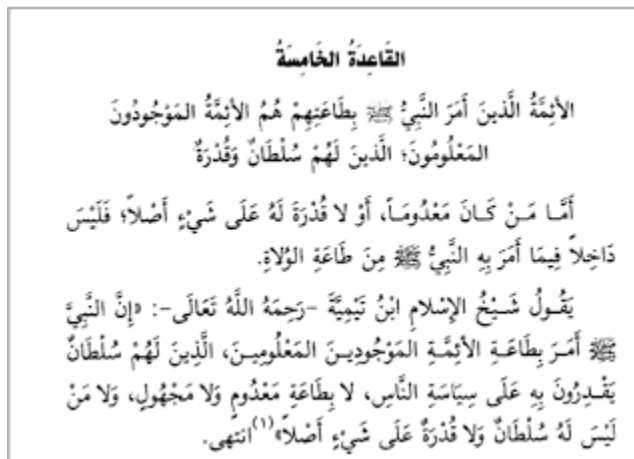 القَاعِدَةُ الخَامِسَةُ
الأَئِمَّةُ الَّذينَ أَمَرَ النَّبِيُّ ﷺ بِطَاعَتِهِمْ هُمُ الأَئِمَّةُ المَوْجُودُونَ
المَعْلُومُونَ؛ الَّذينَ لَهُمْ سُلْطَانٌ وَقُدْرَةٌ
أَمَّا مَنْ كَانَ مَعْدُومَاً، أَوْ لا قُدْرَةَ لَهُ عَلَى شَيْءٍ أَصْلاً؛ فَلَيْسَ
دَاخِلاً فِيمَا أَمَرَ بِهِ النَّبِيُّ ﷺ مِنَ طَاعَةِ الوُلاةِ.
يَقُولُ شَيْخُ الإِسْلامِ ابْنُ تَيْمِيَّةَ -رَحِمَهُ اللَّهُ تَعَالَى-: «إِنَّ النَّبِيَّ
ﷺ أَمَرَ بِطَاعَةِ الأَئِمَّةِ المَوْجُودِينَ المَعْلُومِينَ، الَّذِينَ لَهُمْ سُلْطَانٌ
يَقْدِرُونَ بِهِ عَلَى سِيَاسَةِ النَّاسِ، لا بِطَاعَةِ مَعْدُومٍ وَلا مَجْهُولٍ، وَلا مَنْ
لَيْسَ لَهُ سُلْطَانٌ وَلا قُدْرَةٌ عَلَى شَيْءٍ أَصْلاً»(١) انتَهى.